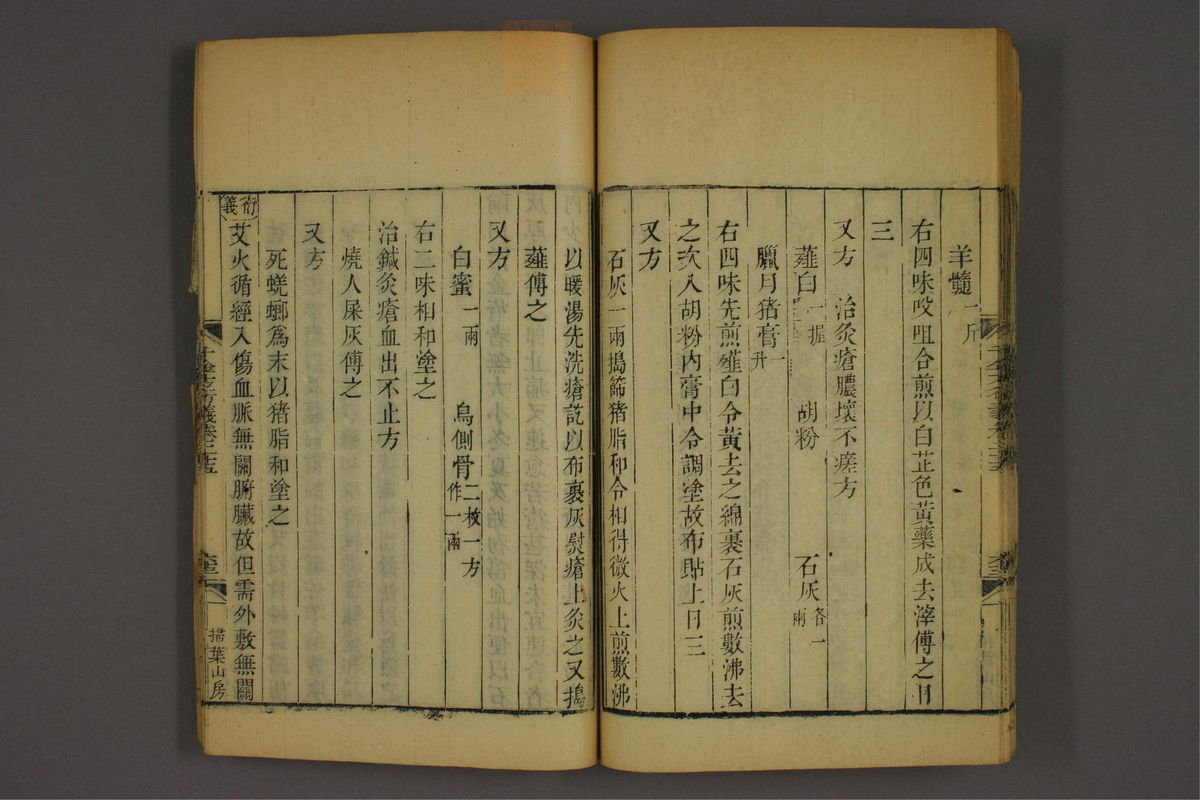 羊髓一斤
右四味㕮咀合煎以白芷色黃藥成去滓傅之日
三
又方　治灸瘡膿壞不瘥方
薤白一握　胡粉　石灰各一兩
臘月猪膏一升
右四味先煎薤白令黃去之綿裹石灰煎數沸去
之次入胡粉內膏中令調塗故布貼上日三
又方
石灰一兩搗篩猪脂和令相得微火上煎數沸
以暖湯先洗瘡訖以布裹灰熨瘡上灸之又搗
薤傅之
又方
白蜜一兩　烏側骨二枚一方作一兩
右二味相和塗之
治鍼灸瘡血出不止方
燒人屎灰傅之
又方
死蜣蜋爲末以猪脂和塗之
衍義
艾火循經入傷血脈無關腑臟故但需外敷無關
千金方衍義卷二十五
掃葉山房